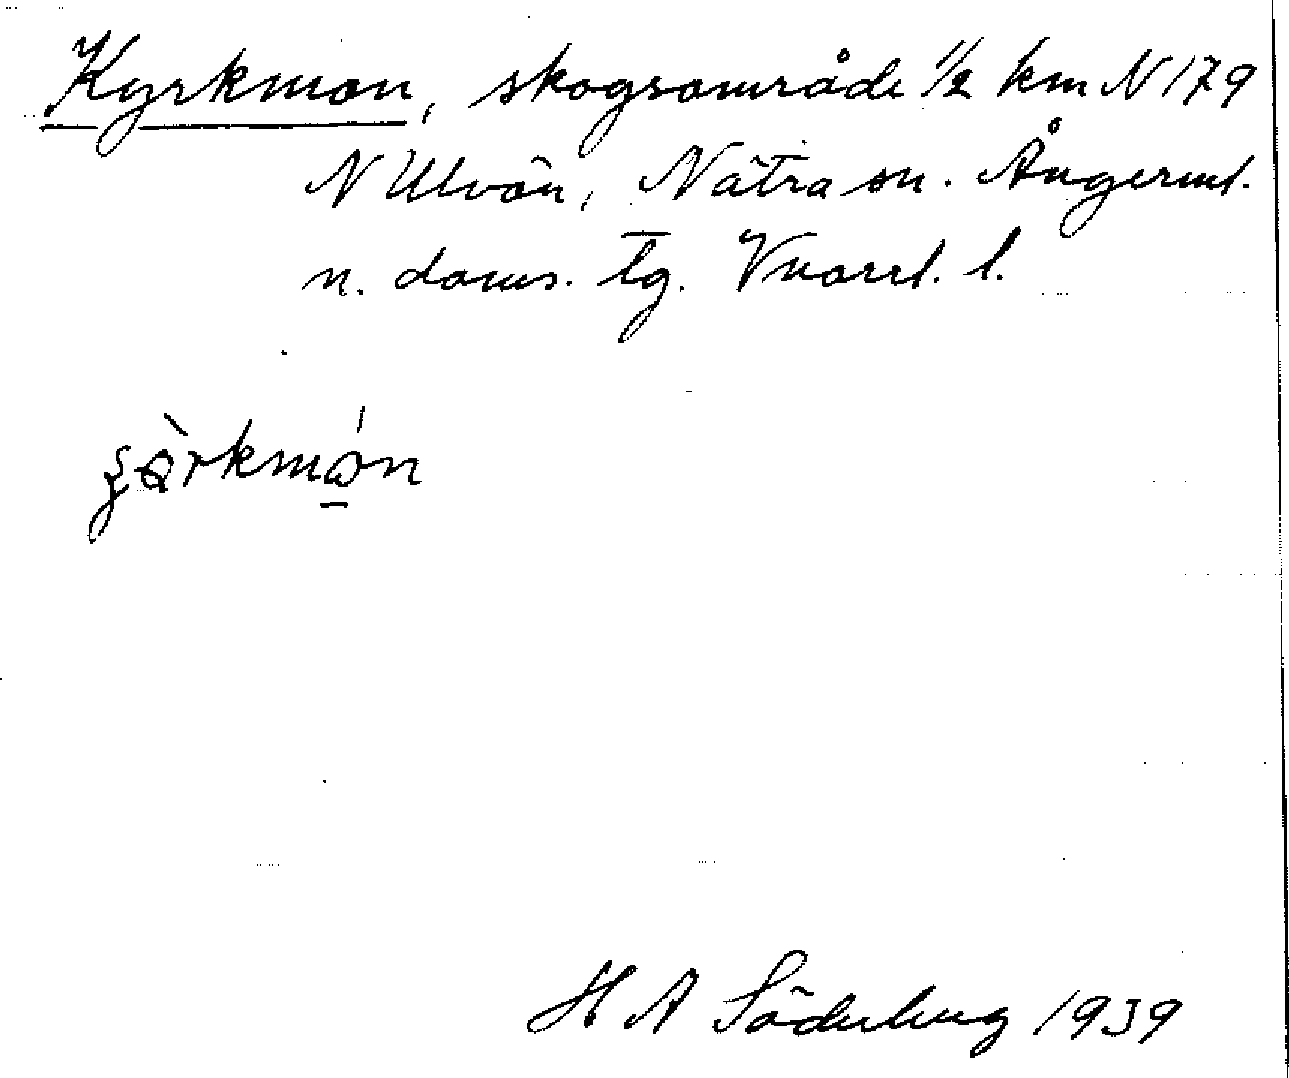 Kyrkmon, skogsområde 1/2 km N 179
N Ulvön, Nätra sn. Ångerml.
n. doms. tg. Vnorrl. l.
H A Söderberg 1939